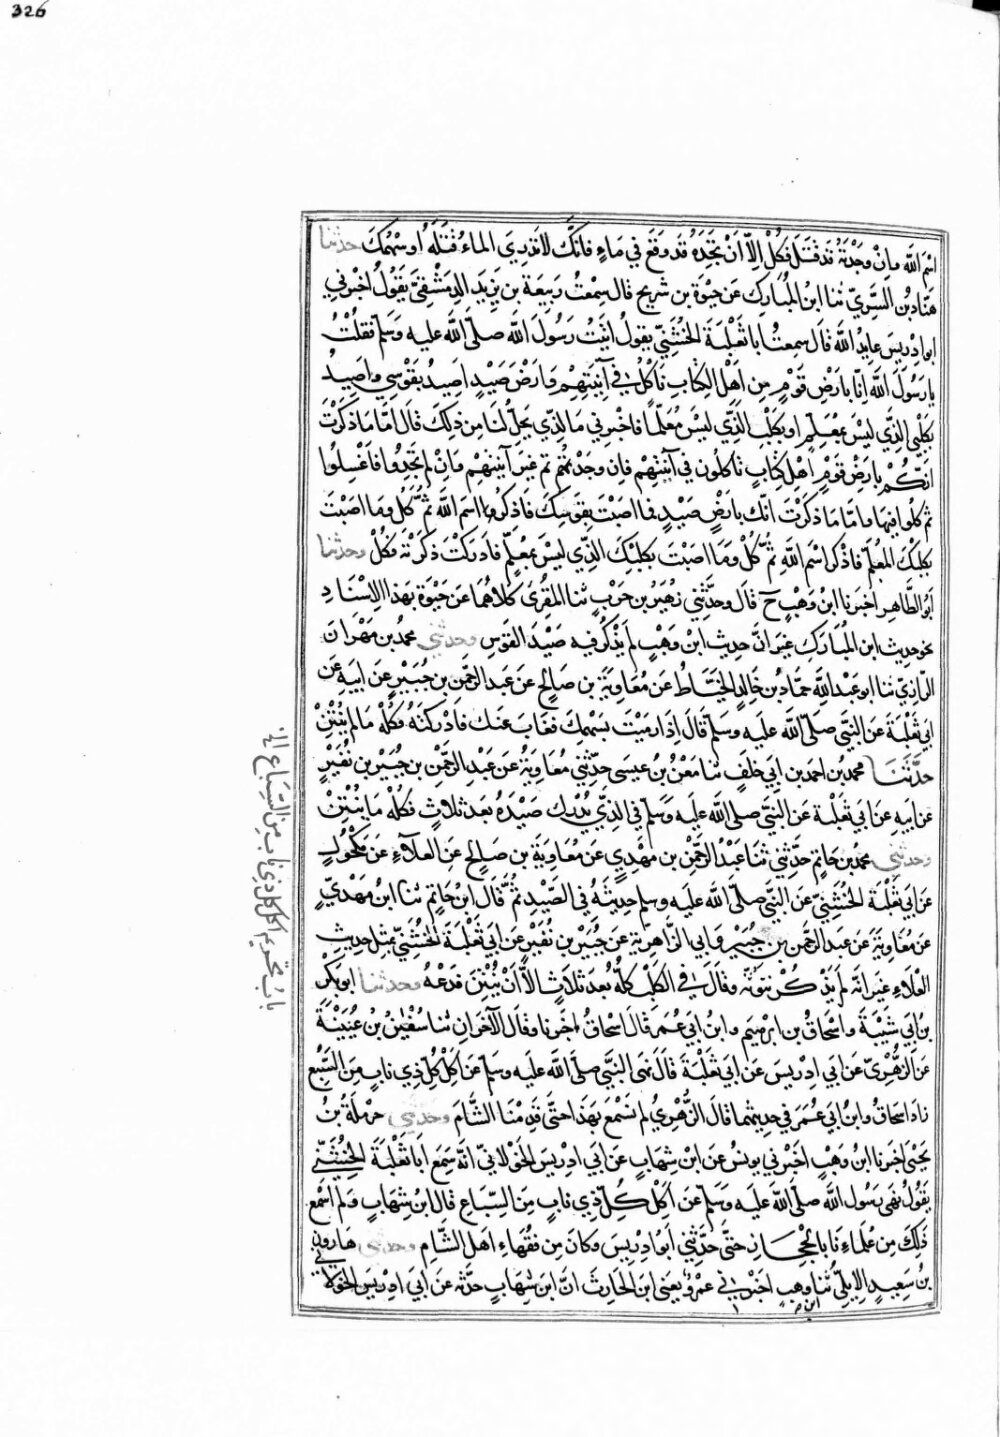 326
اسْمَ اللَّه وَاِنْ وَجَدْتَهُ قَد قَتَلَ فَكُلْ اِلَّا اَنْ تَجِدَهُ قَد وَقَعَ فِي مَاءٍ فَانَّكَ لَا تَدْرِيَ الماءُ قَتَلَهُ اَوْ سَهْمُكَ حدثنا
هَنَّادُ بنُ السَّرِيِّ ثنا ابنُ المُبَارَكِ عَن حَيْوَةَ بن شريح قال سمعْتُ رَبيعَةَ بن يَزِيدَ الدِمَشْقِيَّ يَقُولُ اخبرني
ابو ادْرِيسَ عايِذُ اللَّه قَالَ سمِعتُ ابا ثَعْلَبَةَ الخُشَنِيَّ يقولُ اَتَيْتُ رَسُولَ اللَّه صلّى اللَّه عليه وَسَلَّم فَقلْتُ
يا رَسُولَ اللَّه اِنّا بِاَرْضِ قَوْمٍ مِن اَهْلِ الكِتَابِ نَاْكُلُ فِي آنِيَتِهِمْ وَاَرْضِ صَيْدٍ اَصِيدُ بِقَوْسِي وَاَصِيدُ
بِكَلْبِي الَّذِي لَيْسَ بِمُعَلَّمٍ او بِكَلْبِي الَّذِي لَيْسَ مُعَلَّمًا فاَخْبِرني مَا الَّذِي يَحِلُّ لَنَا مِن ذلِكَ قَالَ امّا مَا ذَكَرْتَ
اَنَّكُمْ بِاَرْضِ قَوْمٍ اَهْلِ كِتابٍ تَاكُلُون فِي آنِيَتِهِمْ فَاِن وَجَدْتُمْ غَيرَ آنِيَتِهِمْ وَاِنْ لَم تَجِدُوا فَاغْسِلُوا
ثم كلُوا فيهَا وامّا مَا ذَكَرْتَ انّك بِاَرْضِ صَيْدٍ فما اصَبْتَ بِقَوسِكَ فَاذكُر اسمَ اللَّه ثُمَّ كُلْ وما اصَبْتَ
بِكَلْبِكَ المُعَلَّمِ فَاذْكُر اسْمَ اللَّه ثُمَّ كُلْ وَمَا اَصَبْتَ بِكَلبِكَ الَّذِي لَيسَ بِمُعَلَّمٍ فَاَدرَكْتَ ذَكَرْتَهُ فَكُلْ وحدثنا
ابُو الطَّاهِر اخبرَنا ابنُ وَهْبٍ ح قَالَ وحَدَّثني زُهَيرُ بن حَرْبٍ ثنا المقْرئُ كلاهُما عَن حَيْوَةَ بهذا الاِسْنَادِ
نحو حديث ابن المُبَارَكِ غَيرَ انَّ حديث ابْنِ وَهْبٍ لَم يَذْكُر فيه صَيْدَ القَوْسِ وحدثني محمدُ بن مِهْرَان
الرّازِيّ ثنا ابو عَبْدِ اللَّه حَمّادُ بن خَالِدٍ الخَيّاطُ عَن مُعَاوِيَةَ بن صَالِحٍ عَن عَبدِ الرَّحمن بن جُبَيْرٍ عَن ابيهِ عَن
ابي ثَعْلَبَةَ عَن النَّبِي صلّى اللَّه عليه وَسَلّم قَالَ اِذَا رَمَيْتَ بِسَهْمِكَ فَغَابَ عَنك فَادْرَكتَهُ فَكُلْهُ مَا لم يُنْتِنْ
حدَّثَنا محمدُ بن احمدَ بن ابي خَلَفٍ ثنا مَعْنُ بنُ عِيسَى حدّثَنِي مُعَاوِيَةُ عَن عَبْدِ الرَّحْمنِ بن جُبَيْرِ بن نُفَيْرٍ
عَن ابيهِ عَن ابي ثَعْلَبَةَ عَن النَّبِي صلى اللَّه عليه وَسَلم فِي الذي يُدْرِك صَيْدَهُ بَعدَ ثلاثٍ فَكُلْه مَا لم يُنْتِنْ
وحدثني محمدُ بن حَاتِمٍ حدّثَنِي ثنا عَبْدُ الرَّحْمنِ بن مَهْدِيٍ عَن مُعَاوِيَةَ بن صَالِحٍ عَنِ العَلاءِ عَن مَكْحُولٍ
عَن ابي ثَعْلَبَةَ الخُشَنِيِّ عَن النَّبِي صلى اللَّه عليه وسلم حديثَهُ في الصَّيْدِ ثُمَّ قَالَ ابنُ حَاتِمٍ ثنا ابنُ مَهْدِيٍّ
عَن مُعَاوِيَةَ عَن عَبدِ الرَّحمن بن جُبَيْر وَابي الزّاهِرِيّة عَن جُبَيْر بن نُفَيْرٍ عَن ابي ثَعْلَبَةَ الخُشَنِيِّ بمِثل حديث
العَلاءِ غَيرَ انَّه لَم يَذْكُرْ نُتُونَتَهُ وَقَالَ فِي الكَلْبِ كُلْهُ بَعدَ ثَلاثٍ اِلَّا اَنْ يُنْتِنَ فَدَعْهُ وحدثنا ابو بكر
بنُ ابي شَيْبَةَ واسْحَاقُ بن ابرهيمَ وابنُ ابي عُمَرَ قَالَ اسْحَاقُ اخبرنا وَقَالَ الآخَرَانِ ثنا سُفْيٰنُ بنُ عُيَيْنَةَ
عَن الزُّهْرِيِّ عَن ابي ادْرِيسَ عَن ابي ثَعْلَبَةَ قَالَ نهَى النَّبِي صَلّى اللَّه عليه وسَلم عَن اَكْلِ كُلِّ ذِي نابٍ مِنَ السَّبُعِ
زادَ اسحاقُ وابنُ ابي عُمَرَ في حديثهما قَالَ الزُّهْرِيُّ لم نسْمَعْ بهَذا حتّى قَدِمْنَا الشَّامَ وحدثني حَرْمَلَةُ بنُ
يَحْيَى اخبرنا ابنُ وَهْبٍ اخبرني يُونُسُ عَن ابنِ شِهَابٍ عَن ابي ادْرِيسَ الخَوْلانيِّ انَّه سَمِعَ ابَا ثَعْلَبَةَ الخُشَنِيَّ
يَقُولُ نَهَى رَسُولُ اللَّه صلّى اللَّه عليه وَسَلم عَن اَكْلِ كُلِّ ذِي نابٍ مِنَ السِّبَاعِ قَالَ ابنُ شِهَابٍ وَلَم اَسْمَعْ
ذَلِكَ مِن عُلَمَاءِنَا بِالحِجَازِ حتَّى حَدَّثَنِي ابُو ادْرِيسَ وَكَانَ مِن فُقَهَاءِ اَهْلِ الشَّامِ وحدثني هَارُونُ
بنُ سَعِيدٍ الايلِيّ ثنا ابن وهبٍ اخبَرَنِي عَمرٌو يعنِي ابنَ الحَارِث انّ ابنَ شِهَابٍ حدّثه عَن ابي ادْرِيسَ الخَولانيّ
بابُ تحريم اكل كل ذي ناب من السِّبَاعِ الخ